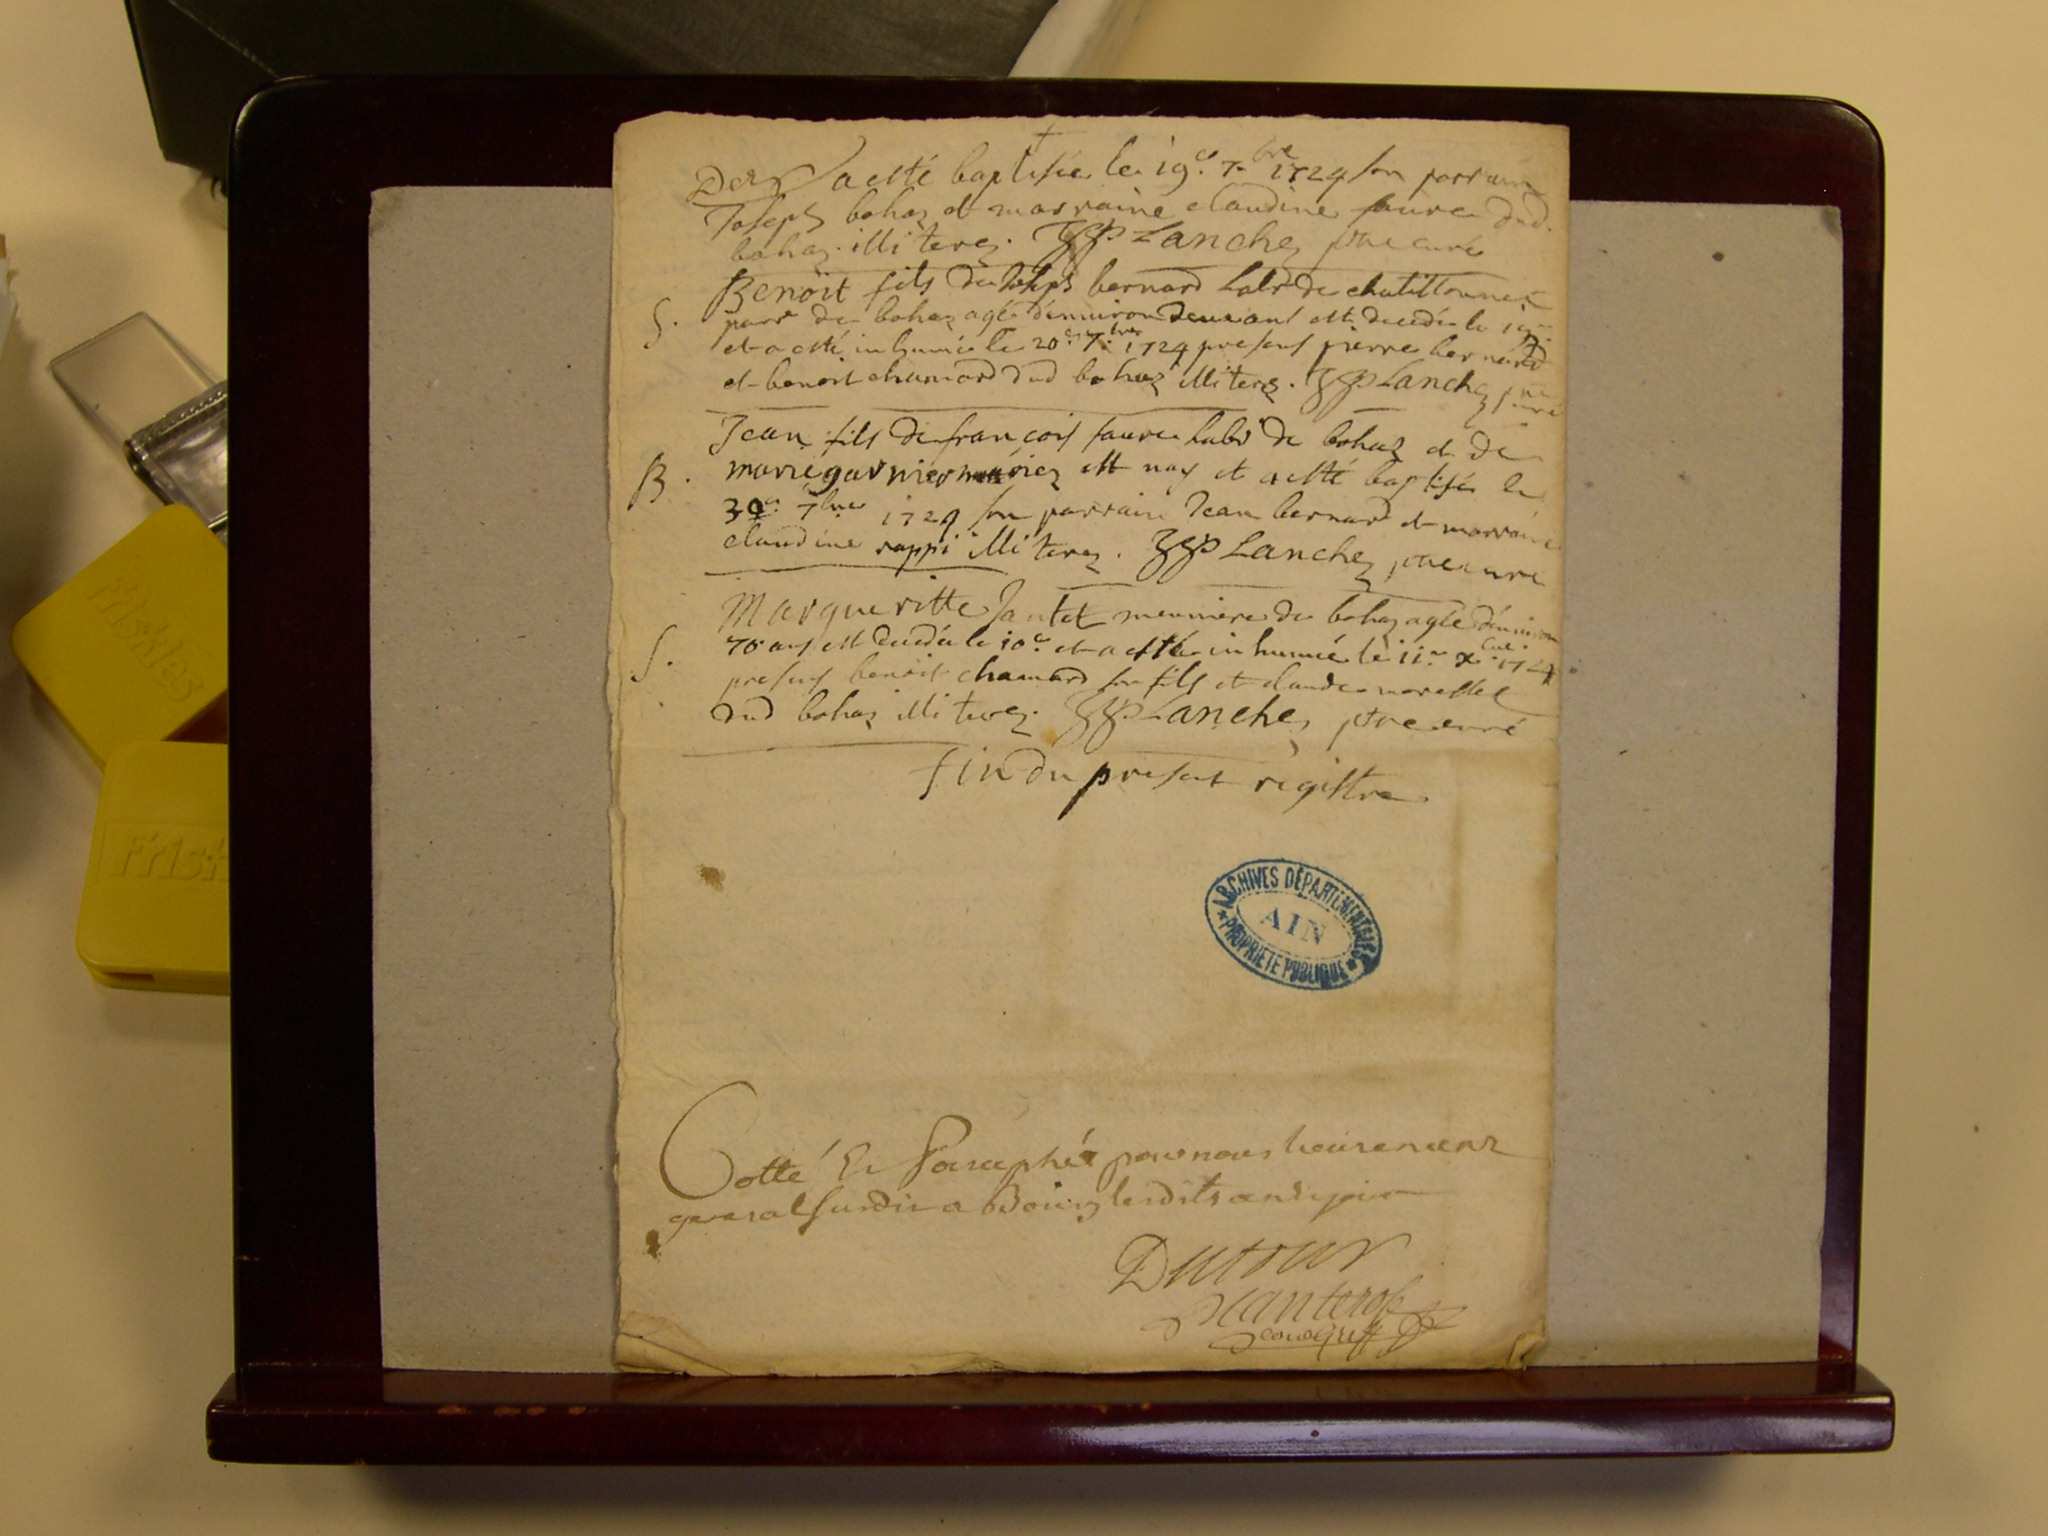 a esté baptisée le 19e 7bre 1724 son parrain
Joseph bohaz et marraine claudine faure dud.
bohaz illiterez. Lanchez ptre curé
Benoît fils de Joseph bernard labr de chatillonnet
S. parr de bohaz agé d'environ deux ans est decedé le 19e
et a esté inhumé le 20e 7bre 1724 presens pierre bernard
et benoit chanard dud bohaz illiterez. Lanchez ptre curé
Jean fils de françois faure labr de bohaz et de
B. marie garnier mariez est nay et a esté baptisé le
30e 7bre 1724 son parrain Jean bernard et marraine
claudine rappi illiterez. Lanchez ptre curé
Margueritte Jantet meuniere de bohaz agée d'environ
S. 70 ans est decedée le 10e et a estée inhumée le 11e 1724
presens benoit chanard son fils et claude morellet
dud bohaz illiterez. Lanchez ptre curé
fin du present registre
ARCHIVES DÉPARTEMENTALES
AIN
PROPRIÉTÉ PUBLIQUE
Cotté Et Paraphé par nous lieutenant
general susdit a Bourg lesdits an et jour
Dutour
Friskies
Frisk